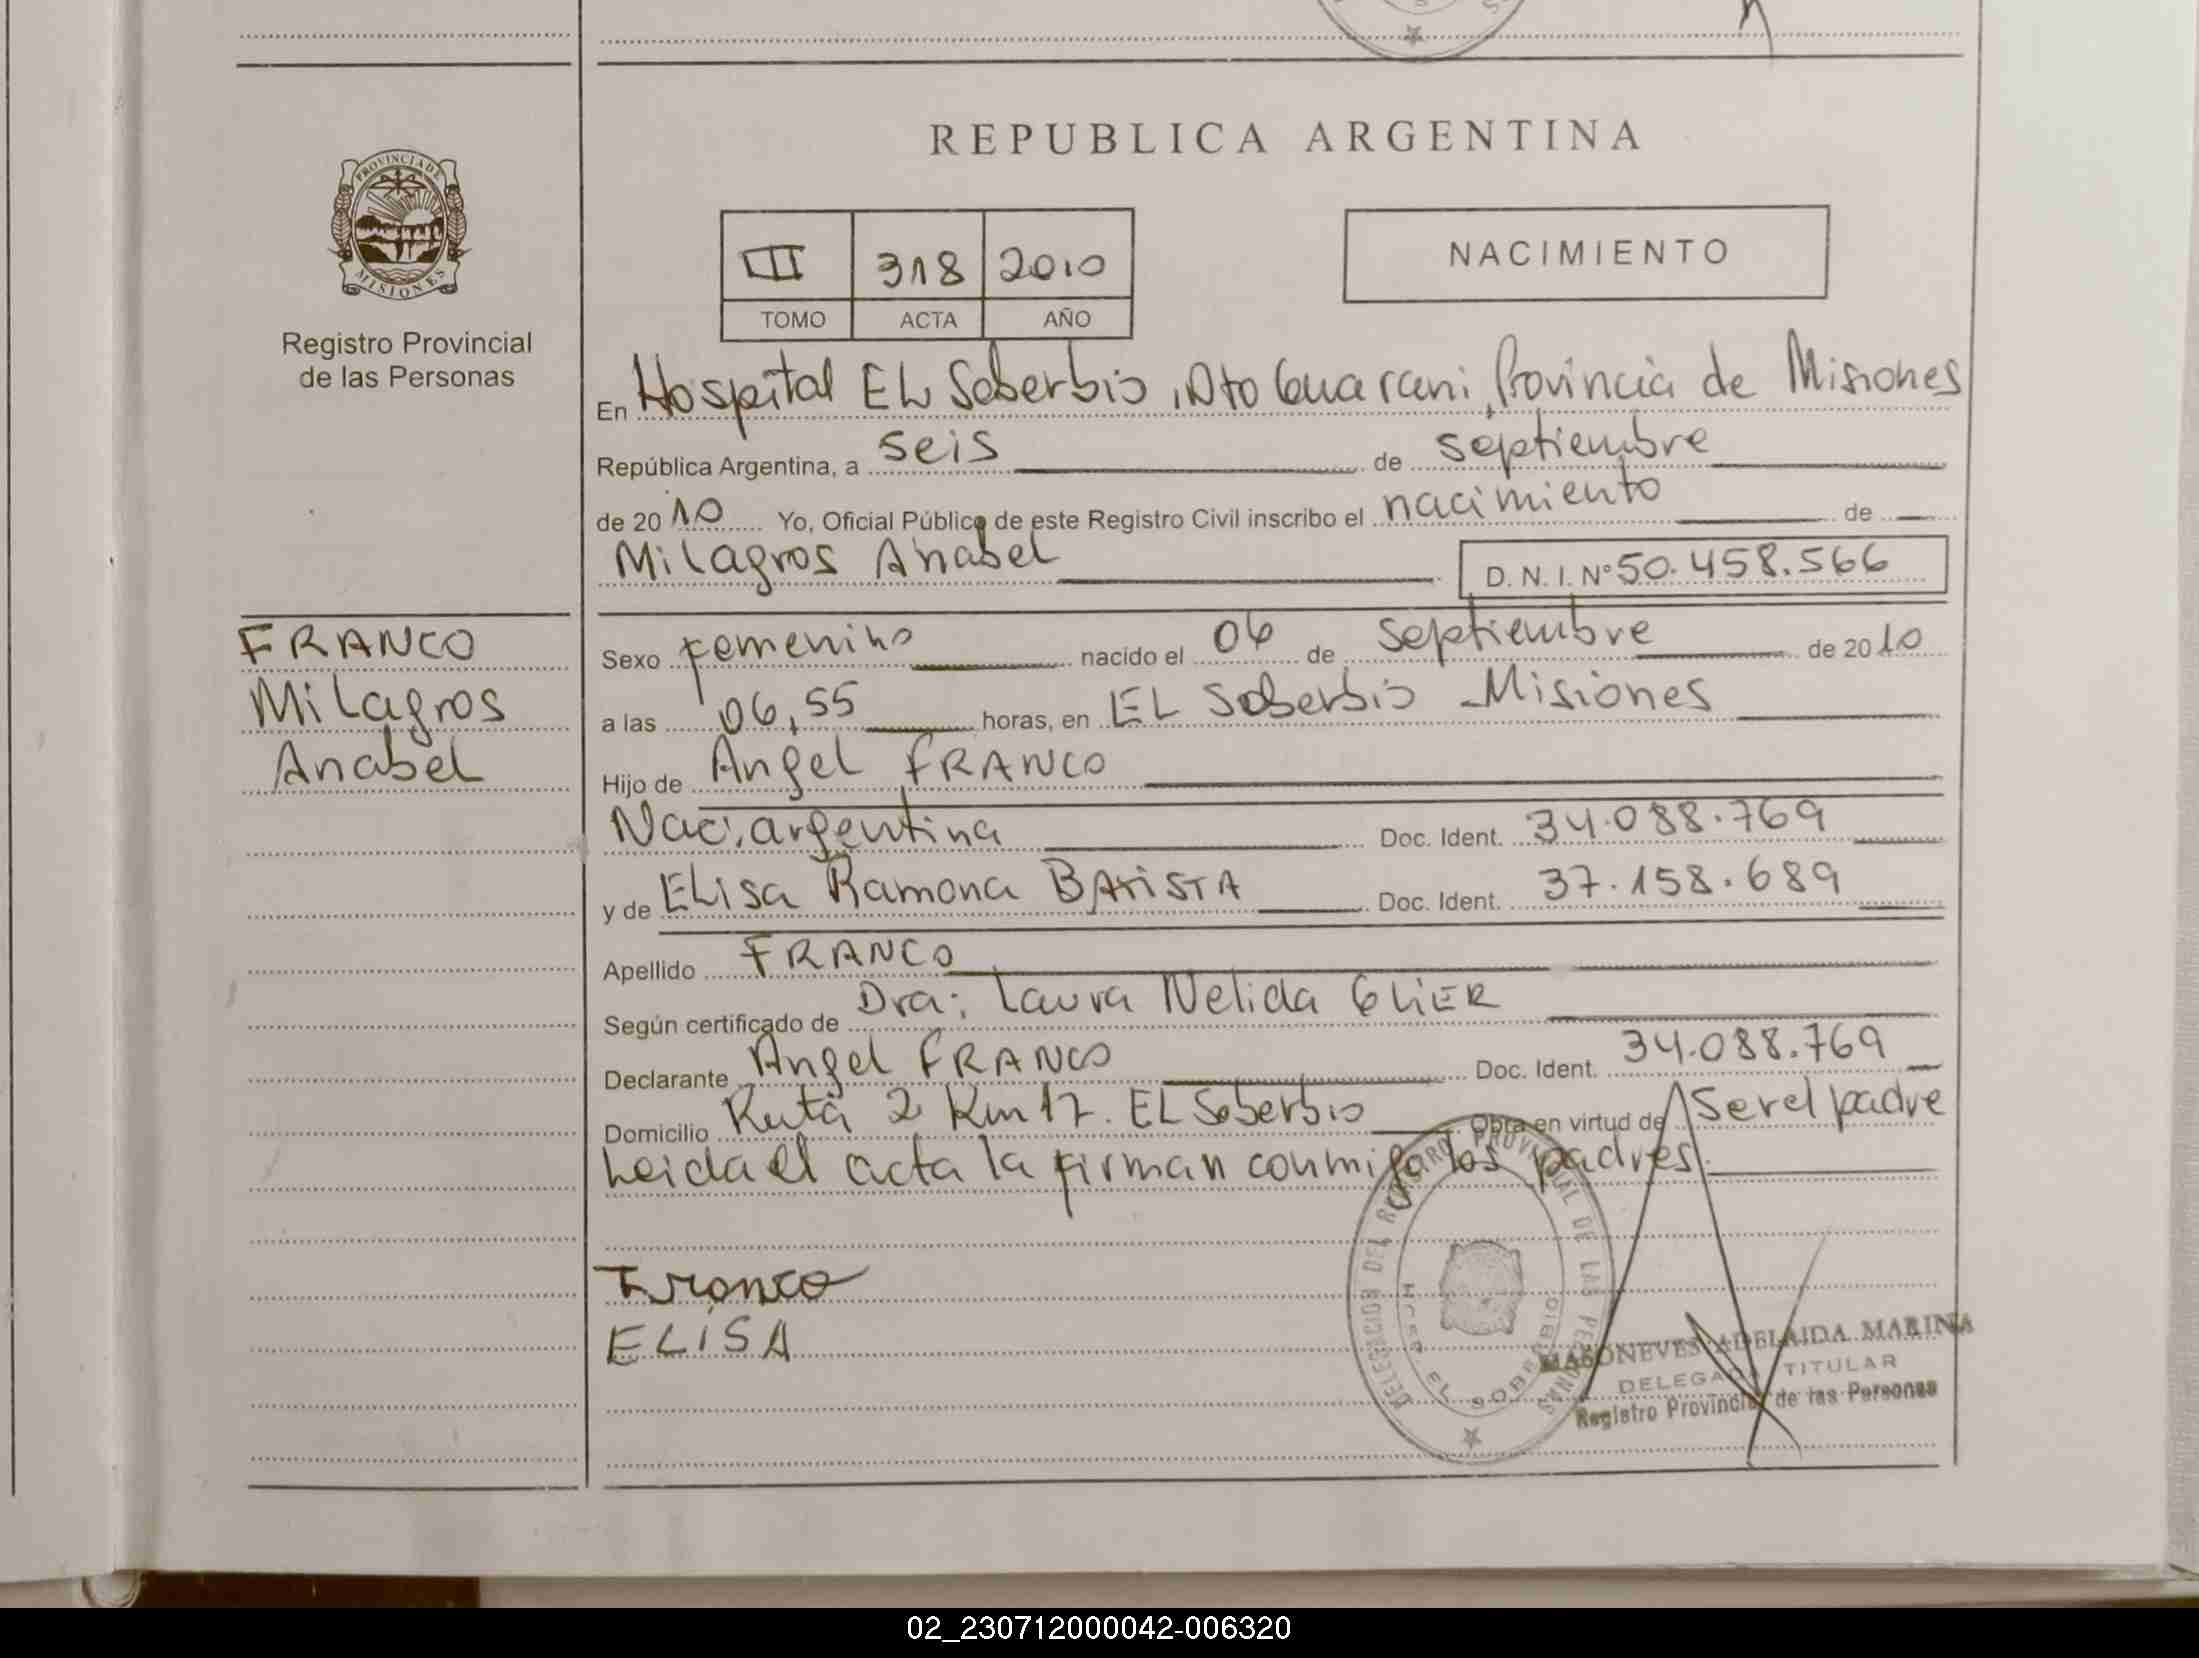 REPUBLICA ARGENTINA
PROVINCIA DE
MISIONES
Registro Provincial
de las Personas
III 318 2010
TOMO ACTA AÑO
NACIMIENTO
En Hospital EL Soberbio, Dto Guarani, Provincia de Misiones
República Argentina, a seis de septiembre
de 2010 Yo, Oficial Público de este Registro Civil inscribo el nacimiento de
Milagros Anabel D. N. I. Nº 50.458.566
FRANCO
Milagros
Anabel
Sexo femenino nacido el 06 de septiembre de 2010
a las 06,55 horas, en EL Soberbio - Misiones
Hijo de Angel FRANCO
Nac. argentina Doc. Ident. 34.088.769
y de ELisa Ramona BATISTA Doc. Ident. 37.158.689
Apellido FRANCO
Según certificado de Dra: Laura Nelida GLIER
Declarante Angel FRANCO Doc. Ident. 34.088.769
Domicilio Ruta 2 Km 17. EL Soberbio Obra en virtud de Ser el padre
Leida el acta la firman conmigo los padres.
Franco
ELISA
DELEGACION DEL REGISTRO PROVINCIAL DE LAS PERSONAS
EL SOBERBIO
ADELAIDA MARINA
DELEGADA TITULAR
Registro Provincial de las Personas
02_230712000042-006320